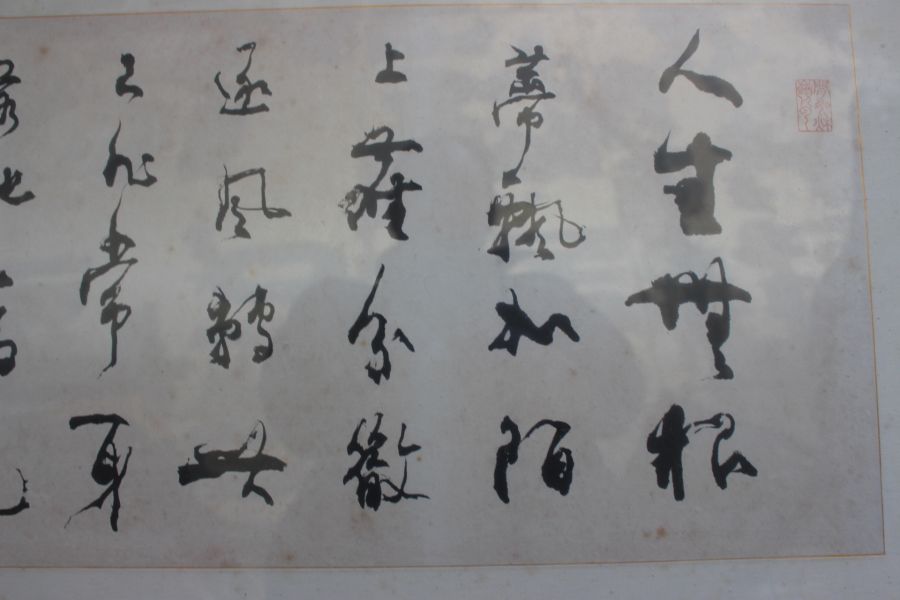 人生無根
蔕飄如陌
上塵分散
逐風轉此
已非常身